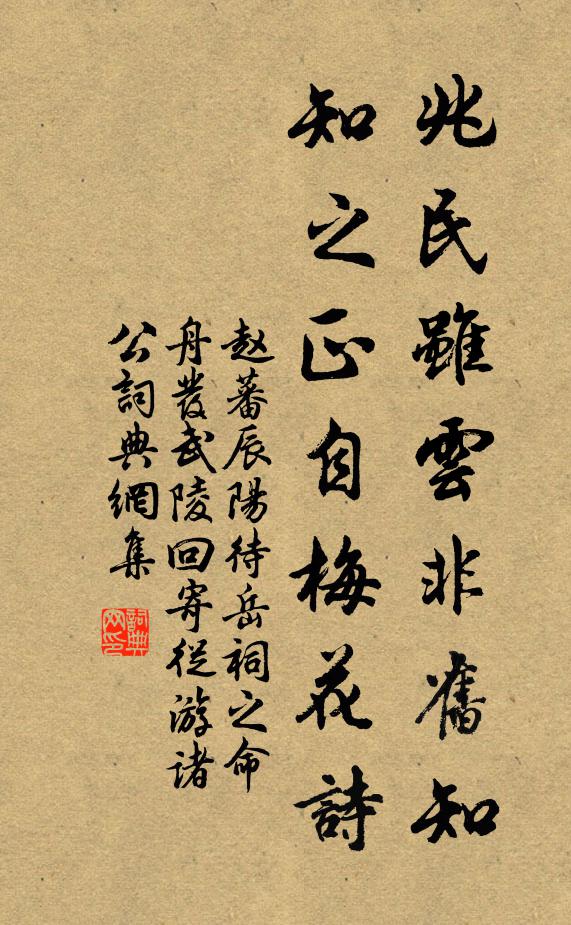 兆民雖雲非舊知
知之正自梅花詩
赵蕃辰陽待岳祠之命
舟發武陵回寄從游诸
公詞典網集
詞典
网印